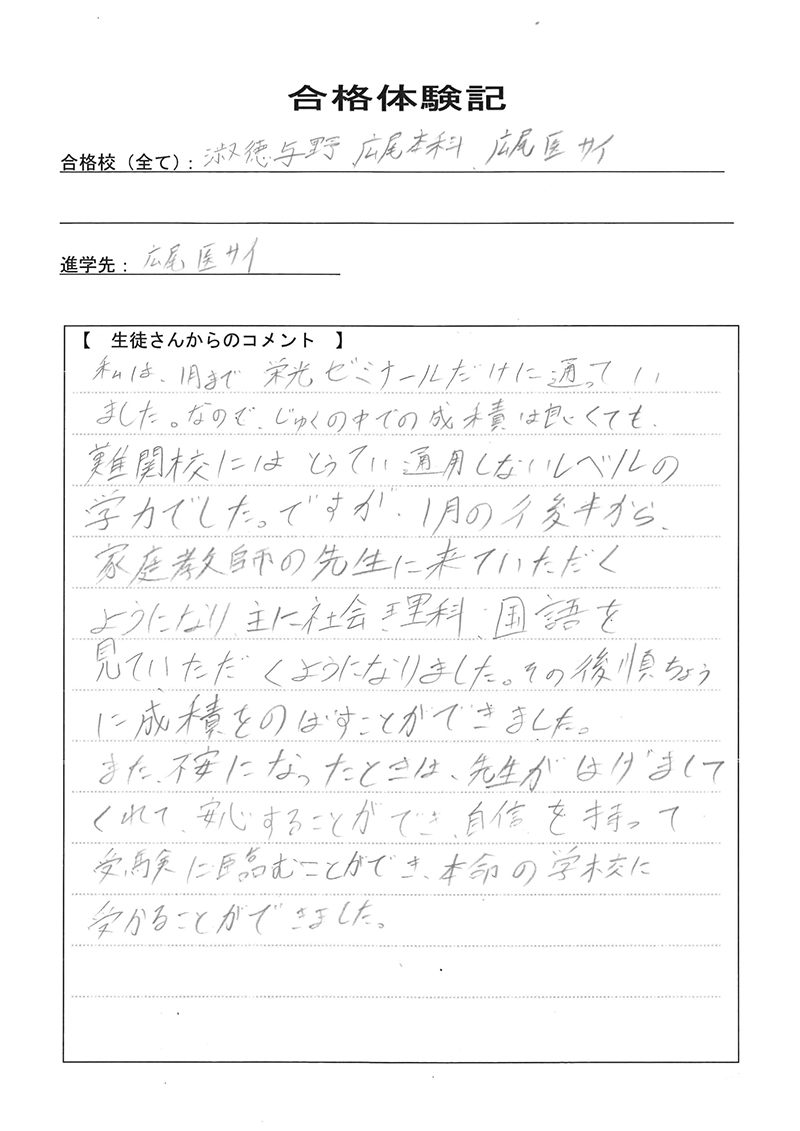 合格体験記
合格校（全て）: 淑徳与野、広尾本科、広尾医サイ
進学先： 広尾医サイ
【 生徒さんからのコメント 】
私は、1月まで 栄光ゼミナールだけに通ってい
ました。なので、じゅくの中での成積は良くても、
難関校にはとうてい通用しないレベルの
学力でした。ですが、1月の後半から、
家庭教師の先生に来ていただく
ようになり、主に社会、理科、国語を
見ていただくようになりました。その後順ちょう
に成積をのばすことができました。
また、不安になったときは、先生がはげまして
くれて、安心することができ、自信を持って
受験に臨むことができ、本命の学校に
受かることができました。